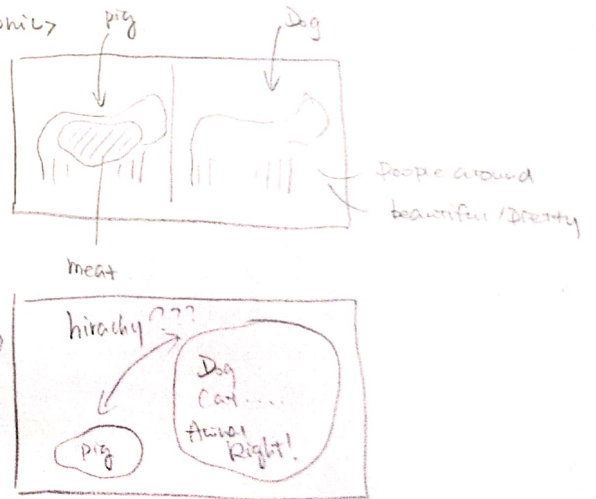 pig
Dog
People around
beautiful /
meat
hirachy ???
Dog
Cat.....
Animal
Right!
pig